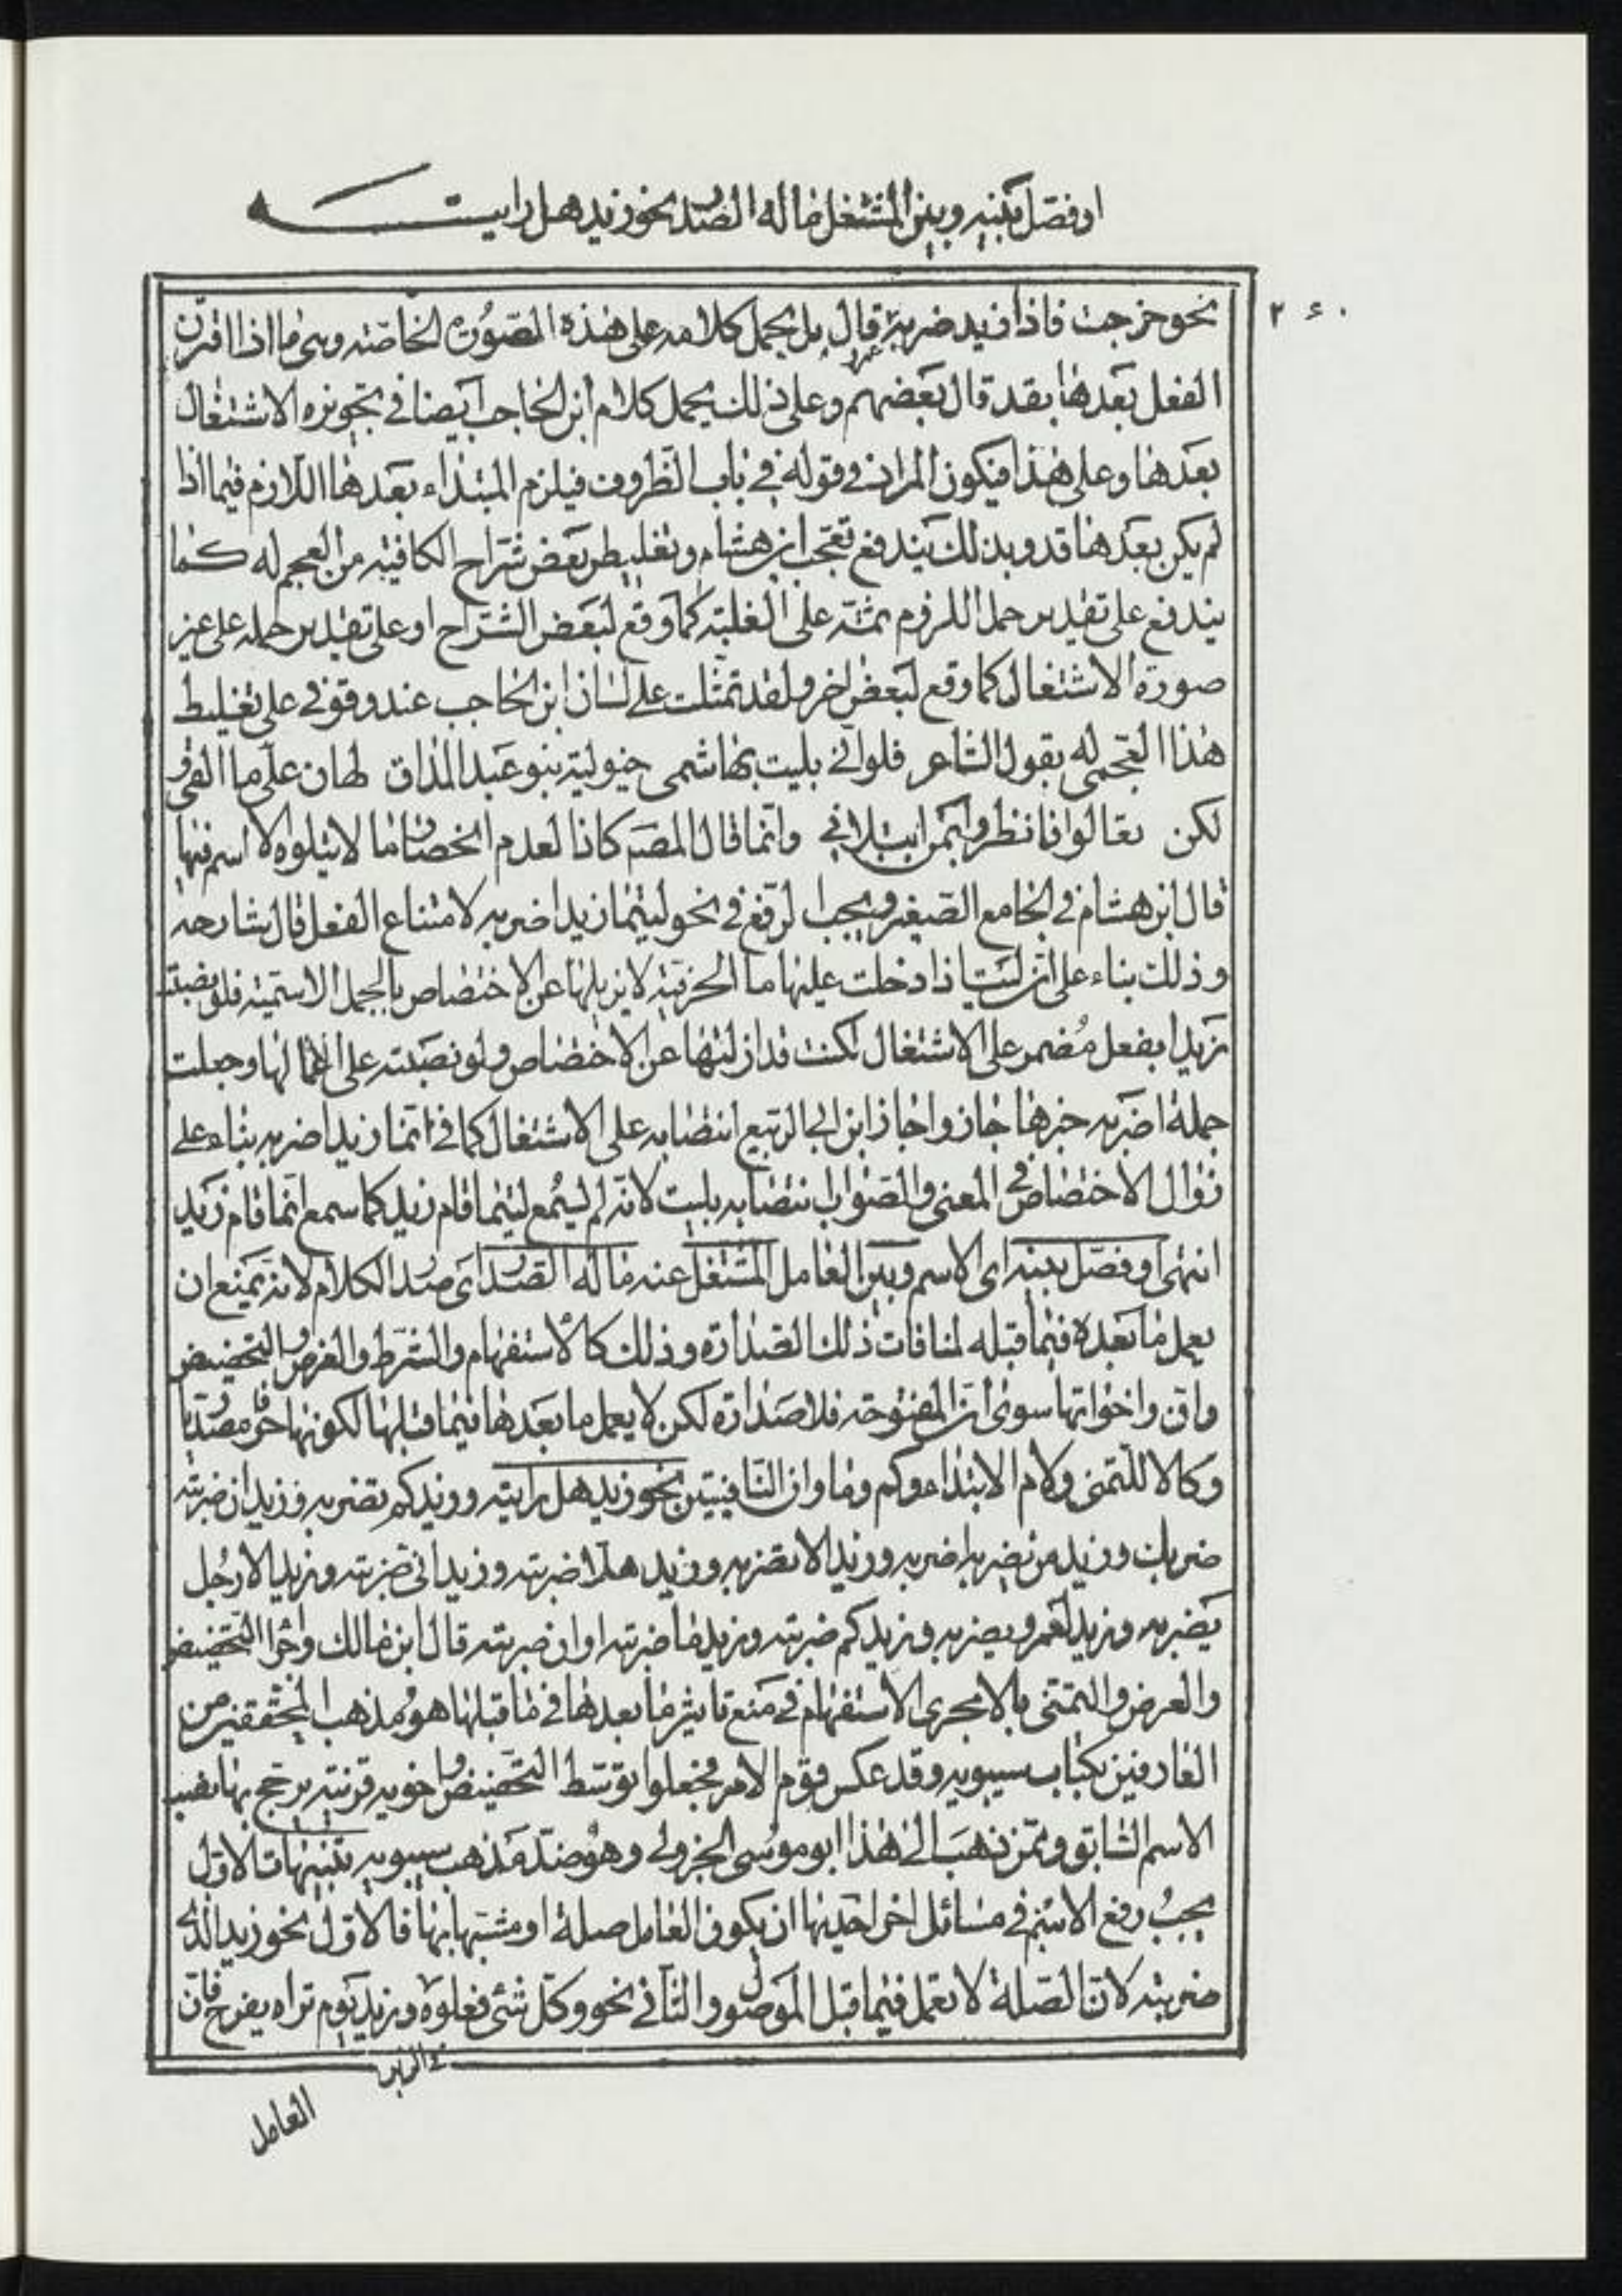 او فصل بينه وبين المشتغل ما له الصدر نحو زيد هل رايته
٢٤٠
نحو خرجت فاذا زيد ضربه عمرو قال بل يحمل كلامه على هذه الصورة الخاصة وهى ما اذا اقترن
الفعل بعدها بقد قال بعضهم وعلى ذلك يحمل كلام ابن الحاجب ايضا في تجويزه الاشتغال
بعدها وعلى هذا فيكون المراد في قوله في باب الظروف فيلزم المبتداء بعدها اللازم فيما اذا
لم يكن بعدها قد وبذلك يندفع تعجب ابن هشام وتغليط بعض شراح الكافية من العجم له كما
يندفع على تقدير حمل اللزوم ثمة على الغلبة كما وقع لبعض الشراح او على تقدير حمله على غير
صورة الاشتغال كما وقع لبعض اخر ولقد تمثلت على لسان ابن الحاجب عند وقوفي على تغليط
هذا العجمى له بقول الشاعر فلو انى بليت بهاشمى خئولته بنو عبد المدان لهان على ما القى و
لكن تعالوا فانظروا بمن ابتلاني وانما قال المص كاذا لعدم انحصار ما لا يتلوه الا اسم فيها
قال ابن هشام في الجامع الصغير ويجب الرفع في نحو ليتما زيدا ضربه لامتناع الفعل قال شارحه
وذلك بناء على ان ليت اذا دخلت عليها ما الحرفية لا يزيلها عن الاختصاص بالجمل الاسمية فلو نصبت
زيدا بفعل مضمر على الاشتغال لكنت قد ازلتها عن الاختصاص ولو نصبته على اعمالها وجعلت
جملة اضربه خبرها جاز واجاز ابن ابي الربيع انتصابه على الاشتغال كما في انما زيدا اضربه بناء على
زوال الاختصاص في المعنى والصواب انتصابه بليت لانه لم يسمع ليتما قام زيد كما سمع انما قام زيد
انتهى او فصل بينه اى الاسم وبين العامل المشتغل عنه ما له الصدر اى صدر الكلام لانه يمنع ان
يعمل ما بعده فيما قبله لمنافات ذلك الصدارة وذلك كالاستفهام والشرط والعرض والتحضيض
وان واخواتها سوى ان المفتوحة فلا صدارة لكن لا يعمل ما بعدها فيما قبلها لكونها حرفا مصدريا
وكالا للتمنى ولام الابتداء وكم وما وان النافيتين نحو زيد هل رايته وزيد كم تضربه وزيد ان ضربته
ضربك وزيد من يضربه اضربه وزيد الا تضربه وزيد هلا ضربته وزيد انى ضربته وزيد الا رجل
يضربه وزيد لعمرو يضربه وزيد كم ضربته وزيد ما ضربته او ان ضربته قال ابن مالك واجرا التحضيض
والعرض والتمنى بالا مجرى الاستفهام في منع تاثير ما بعدها في ما قبلها هو مذهب المحققين من
العارفين بكتاب سيبويه وقد عكس قوم الامر فجعلوا توسط التحضيض واخويه قرينة يرجح بها نصب
الاسم السابق وممن ذهب الى هذا ابو موسى الجزولى وهو ضد مذهب سيبويه تنبيهات الاول
يجب رفع الاسم في مسائل اخر احديها ان يكون العامل صلة او مشبها بها فالاول نحو زيد الذى
ضربته لان الصلة لا تعمل فيما قبل الموصول والثاني نحو وكل شئ فعلوه وزيد يوم تراه يفرح فان
في الزبر
العامل